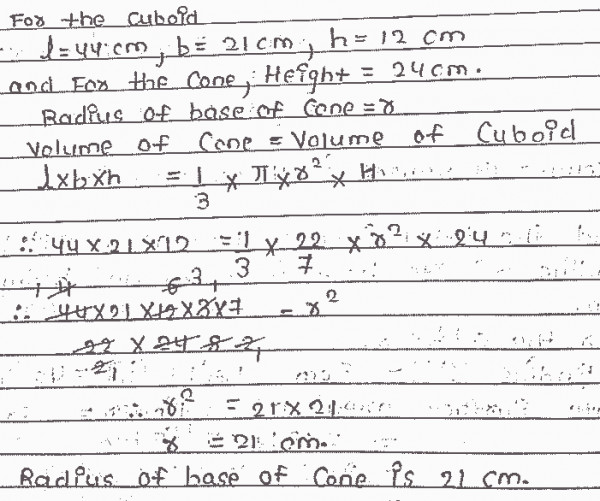 For the Cuboid
l = 44 cm, b = 21 cm, h = 12 cm
and For the Cone, Height = 24 cm.
Radius of base of Cone = r
Volume of Cone = Volume of Cuboid
l×b×h = 1/3 × π × r² × H
∴ 44 × 21 × 12 = 1/3 × 22/7 × r² × 24
∴ 44×21×12×3×7 / 22 × 24 = r²
∴ r² = 21 × 21
r = 21 cm.
Radius of base of Cone is 21 cm.